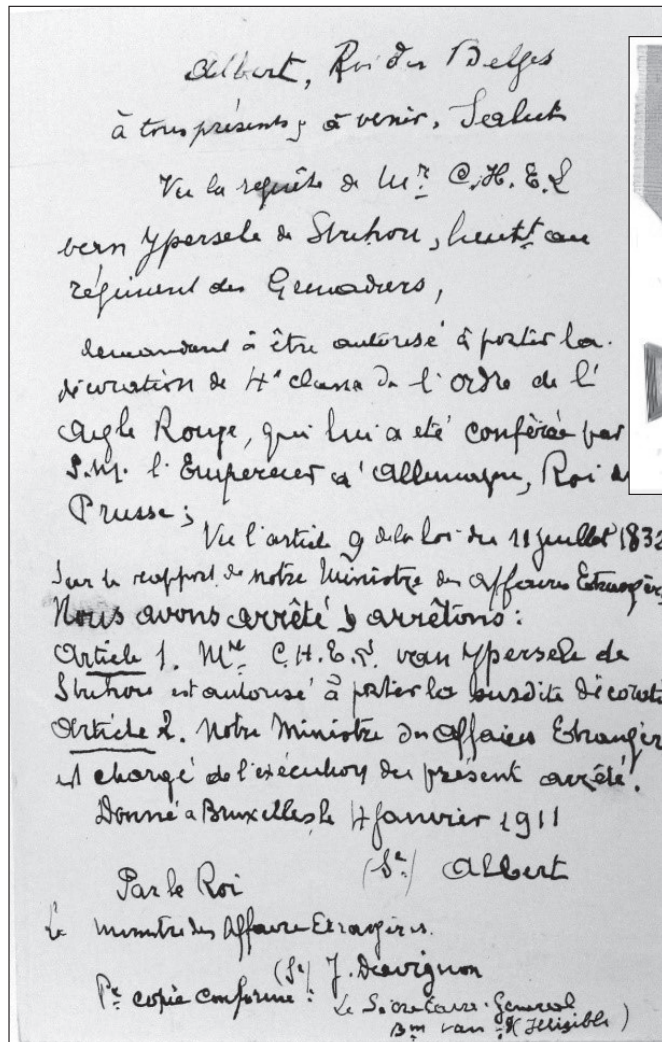 Albert, Roi des Belges
à tous présents & à venir, Salut
Vu la requête de Mr. C.H.E.L
van Ypersele de Strihou, lieutt au
régiment des Grenadiers,
demandant à être autorisé à porter la
décoration de 4e classe de l'ordre de l'
Aigle Rouge, qui lui a été conférée par
S.M. l'Empereur d'Allemagne, Roi de
Prusse;
Vu l'article 9 de la loi du 11 juillet 1832
Sur le rapport de notre Ministre des Affaires Etrangèr
Nous avons arrêté & arrêtons:
Article 1. Mr C.H.E.L. van Ypersele de
Strihou est autorisé à porter la susdite décorati
Article 2. Notre Ministre des Affaires Etrangèr
est chargé de l'exécution du présent arrêté.
Donné à Bruxelles le 4 Janvier 1911
(Sé) Albert
Par le Roi
Le Ministre des Affaire Etrangères.
(Sé) J. Davignon
Pr copie conforme: Le Secrétaire-Général
Bon van (Illisible)